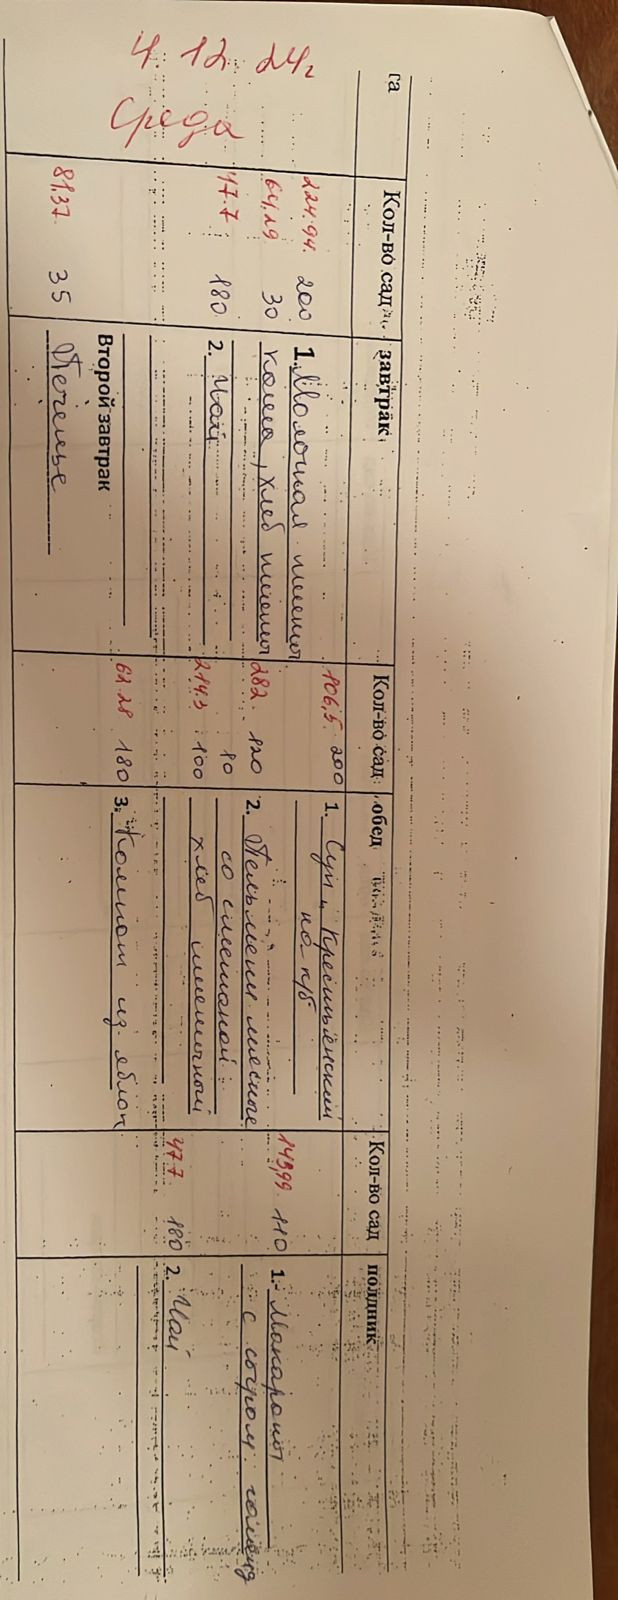 га
4. 12. 24г
Среда
Кол-во сад
завтрак
224.94. 200
1. Молочная пшенная
64.29 30
каша, хлеб пшенич
47.7 180
2. Чай
Второй завтрак
81.37. 35
Печенье
Кол-во сад
обед
106,5. 200
1. Суп Крестьянский
на к/б
282. 120
2. Пельмени мясные
10
со сметаной
214.3 100
хлеб пшеничный
62.28 180
3. Компот из яблок
Кол-во сад
полдник
149,99. 110
1. Макароны
с сыром
47.7 180
2. Чай